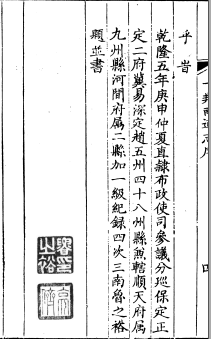 乎旹
乾隆五年庚申仲夏直隷布政使司參議分巡保定正
定二府冀易深定趙五州四十八州縣兼轄順天府属
九州縣河間府属二縣加一級紀録四次三南魯之裕
題並書
魯印
之裕